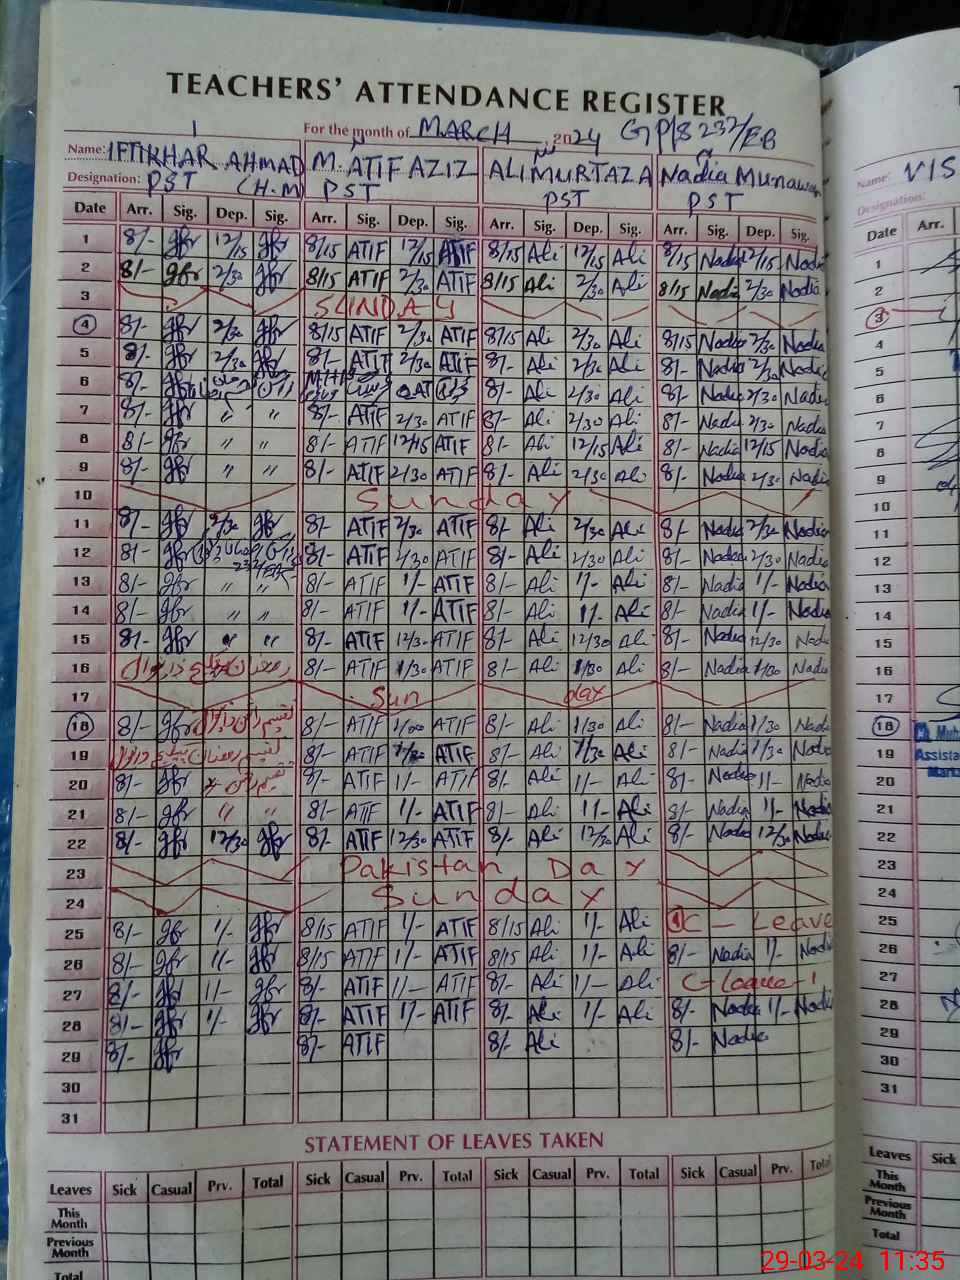 TEACHERS' ATTENDANCE REGISTER
1 For the month of MARCH 2024 GPS 237/EB
Name: IFTIKHAR AHMAD M. ATIF AZIZ ALI MURTAZA Nadia Munawar
Designation: PST (H.M) PST PST PST
Date Arr. Sig. Dep. Sig. Arr. Sig. Dep. Sig. Arr. Sig. Dep. Sig. Arr. Sig. Dep. Sig.
1 8/- 12/15 8/15 ATIF 12/15 ATIF 8/15 Ali 12/15 Ali 8/15 Nadia 12/15 Nadia
2 8/- 2/30 8/15 ATIF 2/30 ATIF 8/15 Ali 2/30 Ali 8/15 Nadia 2/30 Nadia
3 SUNDAY
4 8/- 2/30 8/15 ATIF 2/30 ATIF 8/15 Ali 2/30 Ali 8/15 Nadia 2/30 Nadia
5 8/- 2/30 8/- ATIF 2/30 ATIF 8/- Ali 2/30 Ali 8/- Nadia 2/30 Nadia
6 8/- 8/- Ali 2/30 Ali 8/- Nadia 2/30 Nadia
7 8/- " " 8/- ATIF 2/30 ATIF 8/- Ali 2/30 Ali 8/- Nadia 2/30 Nadia
8 8/- " " 8/- ATIF 12/15 ATIF 8/- Ali 12/15 Ali 8/- Nadia 12/15 Nadia
9 8/- " " 8/- ATIF 2/30 ATIF 8/- Ali 2/30 Ali 8/- Nadia 2/30 Nadia
10 Sunday
11 8/- 2/30 8/- ATIF 2/30 ATIF 8/- Ali 2/30 Ali 8/- Nadia 2/30 Nadia
12 8/- 8/- ATIF 2/30 ATIF 8/- Ali 2/30 Ali 8/- Nadia 2/30 Nadia
13 8/- " " 8/- ATIF 1/- ATIF 8/- Ali 1/- Ali 8/- Nadia 1/- Nadia
14 8/- " " 8/- ATIF 1/- ATIF 8/- Ali 1/- Ali 8/- Nadia 1/- Nadia
15 8/- " " 8/- ATIF 12/30 ATIF 8/- Ali 12/30 Ali 8/- Nadia 12/30 Nadia
16 8/- ATIF 1/30 ATIF 8/- Ali 1/30 Ali 8/- Nadia 1/30 Nadia
17 Sun day
18 8/- 8/- ATIF 1/00 ATIF 8/- Ali 1/30 Ali 8/- Nadia 1/30 Nadia
19 8/- ATIF ATIF 8/- Ali 1/30 Ali 8/- Nadia 1/30 Nadia
20 8/- 8/- ATIF 1/- ATIF 8/- Ali 1/- Ali 8/- Nadia 1/- Nadia
21 8/- " " 8/- ATIF 1/- ATIF 8/- Ali 1/- Ali 8/- Nadia 1/- Nadia
22 8/- 12/30 8/- ATIF 12/30 ATIF 8/- Ali 12/30 Ali 8/- Nadia 12/30 Nadia
23 Pakistan Day
24 Sunday
25 8/- 1/- 8/15 ATIF 1/- ATIF 8/15 Ali 1/- Ali C - Leave
26 8/- 1/- 8/15 ATIF 1/- ATIF 8/15 Ali 1/- Ali 8/- Nadia 1/- Nadia
27 8/- 1/- 8/- ATIF 1/- ATIF 8/- Ali 1/- Ali C-leave
28 8/- 1/- 8/- ATIF 1/- ATIF 8/- Ali 1/- Ali 8/- Nadia 1/- Nadia
29 8/- 8/- ATIF 8/- Ali 8/- Nadia
30
31
STATEMENT OF LEAVES TAKEN
Leaves Sick Casual Prv. Total Sick Casual Prv. Total Sick Casual Prv. Total Sick Casual Prv. Total
This Month
Previous Month
Total
Name: VIS
Designation:
Date Arr.
1
2
3
4
5
6
7
8
9
10
11
12
13
14
15
16
17
18
19
20
21
22
23
24
25
26
27
28
29
30
31
Leaves Sick
This Month
Previous Month
Total
29-03-24 11:35